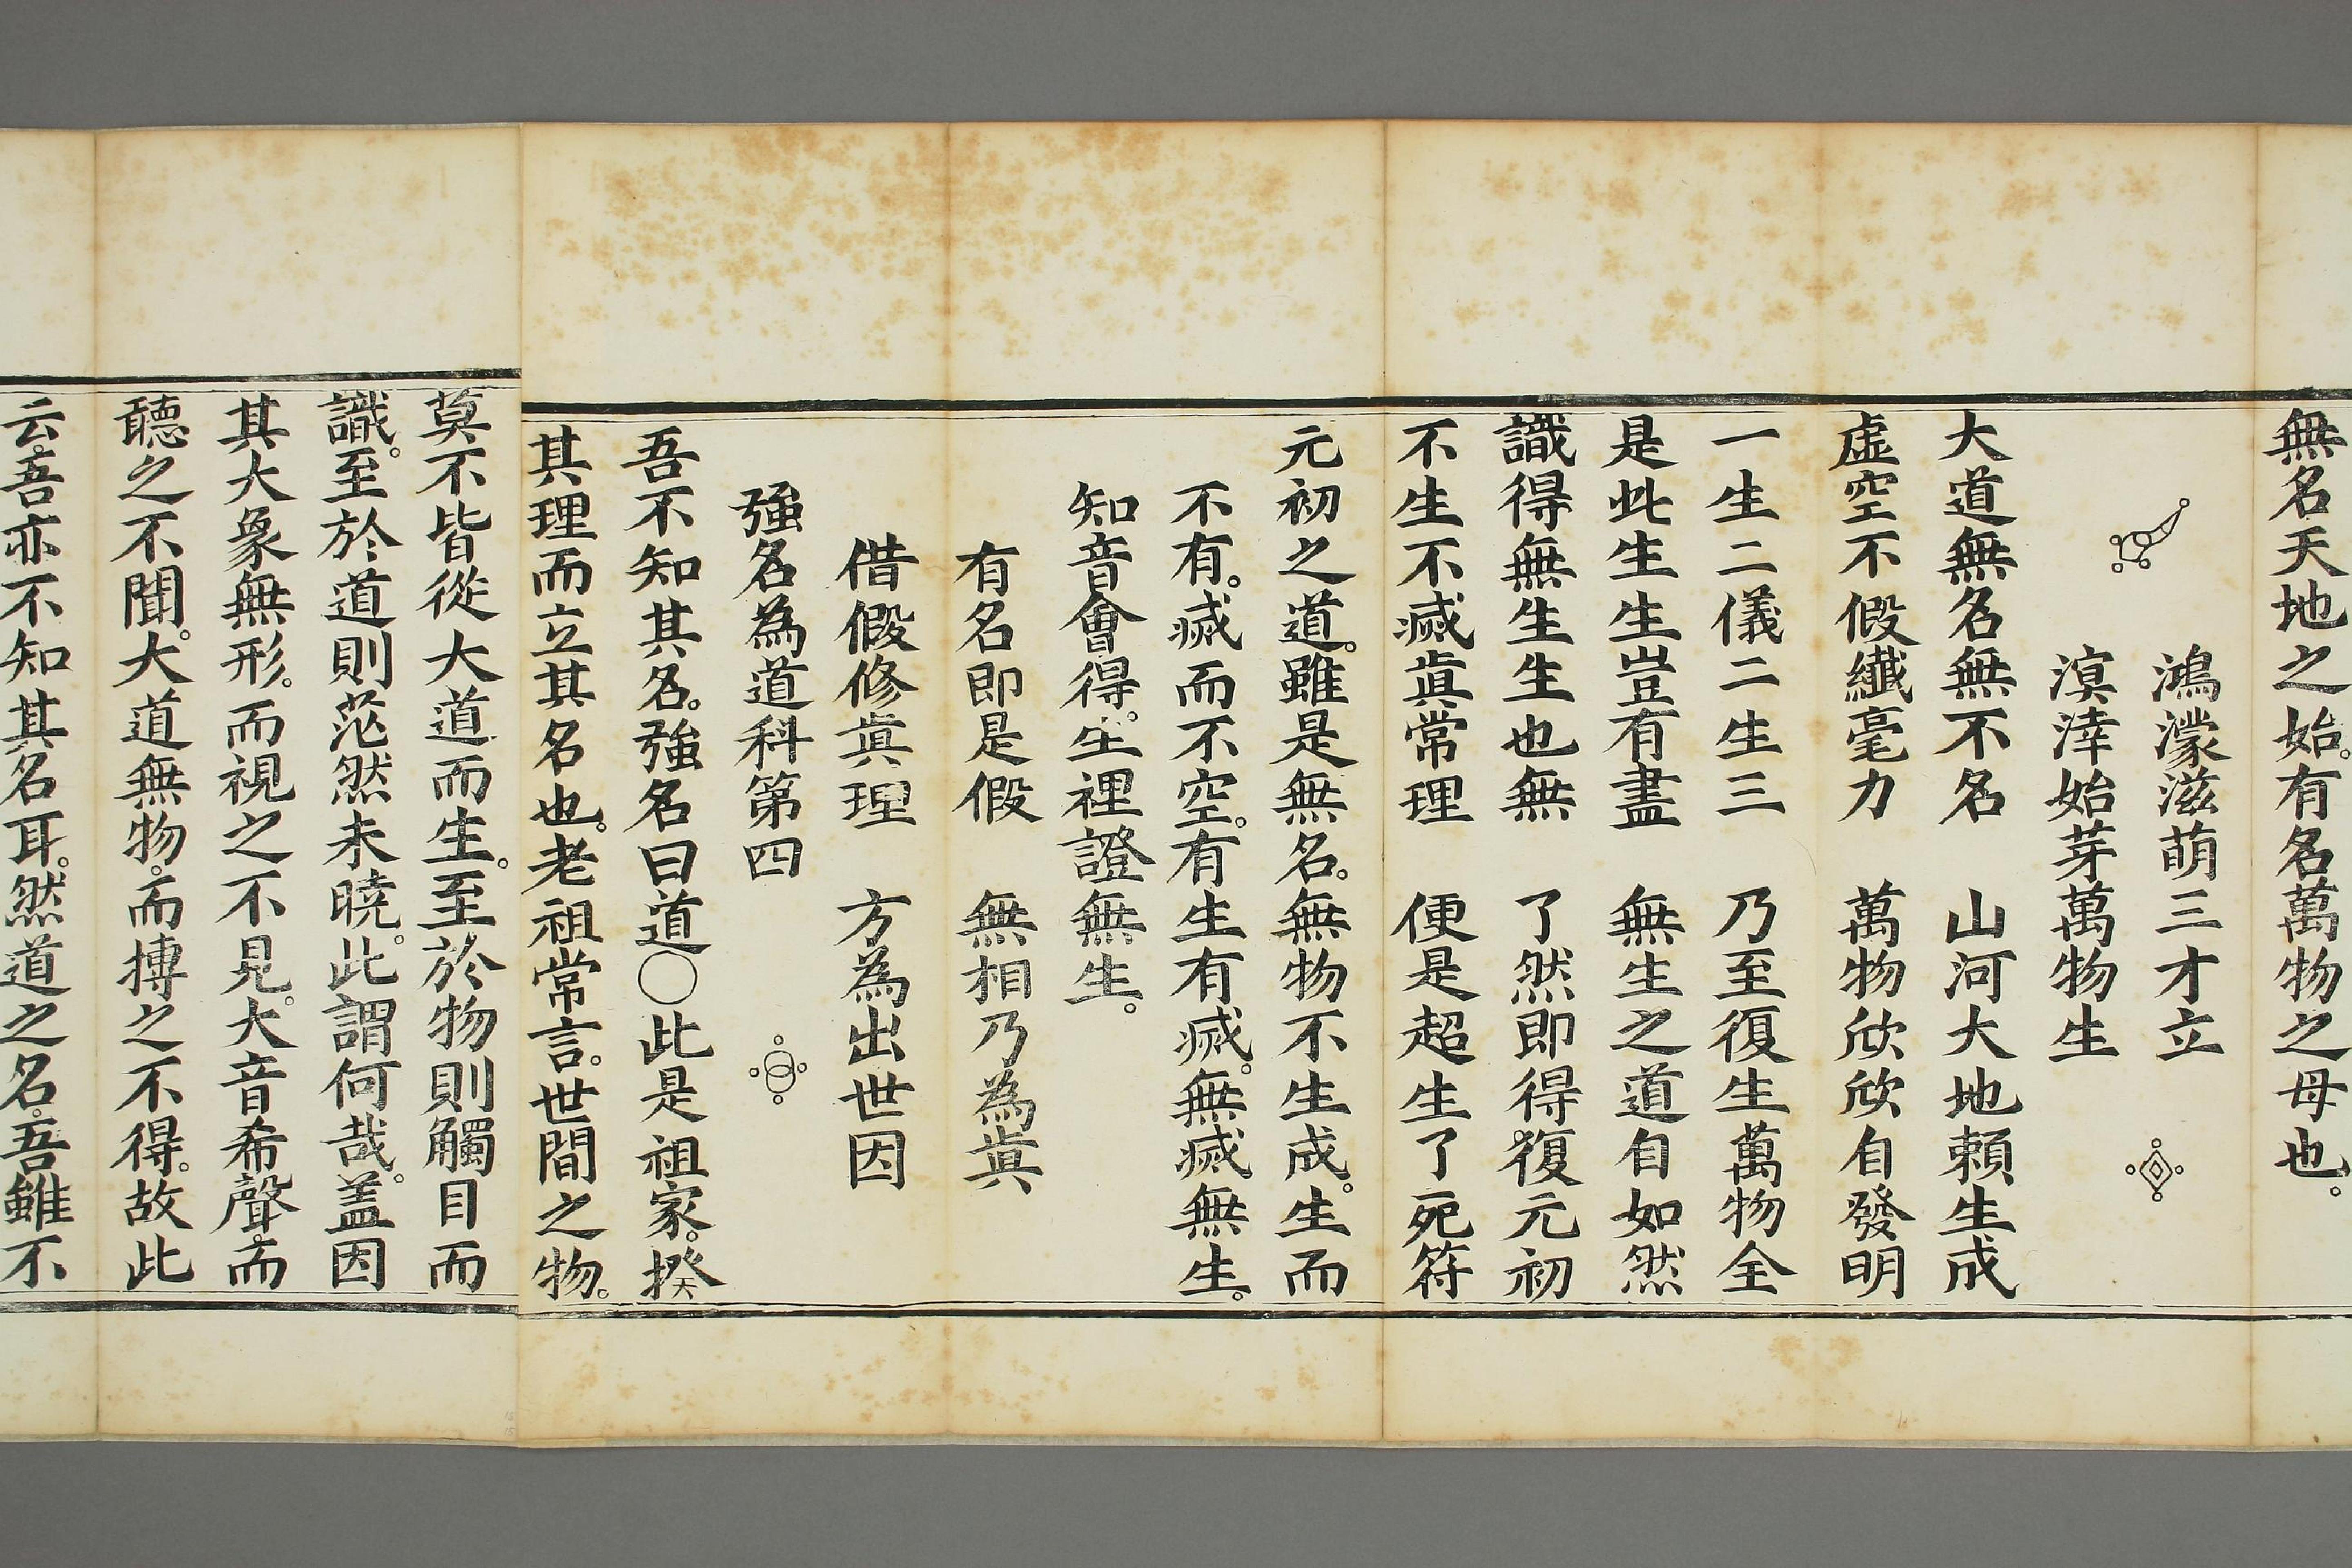 無名天地之始。有名萬物之母也。
鴻濛滋萌三才立
溟涬始芽萬物生
大道無名無不名　山河大地賴生成
虛空不假纖毫力　萬物欣欣自發明
一生二儀二生三　乃至復生萬物全
是此生生豈有盡　無生之道自如然
識得無生生也無　了然即得復元初
不生不滅眞常理　便是超生了死符
元初之道。雖是無名。無物不生成。生而
不有。滅而不空。有生有滅。無滅無生。
知音會得。生裡證無生。
有名即是假　無相乃為眞
借假修眞理　方為出世因
強名為道科第四
吾不知其名。強名曰道〇此是祖家。揆
其理而立其名也。老祖常言。世間之物。
莫不皆從大道而生。至於物則觸目而
識。至於道則茫然未曉。此謂何哉。盖因
其大象無形。而視之不見。大音希聲。而
聽之不聞。大道無物。而搏之不得。故此
云。吾亦不知其名耳。然道之名。吾雖不